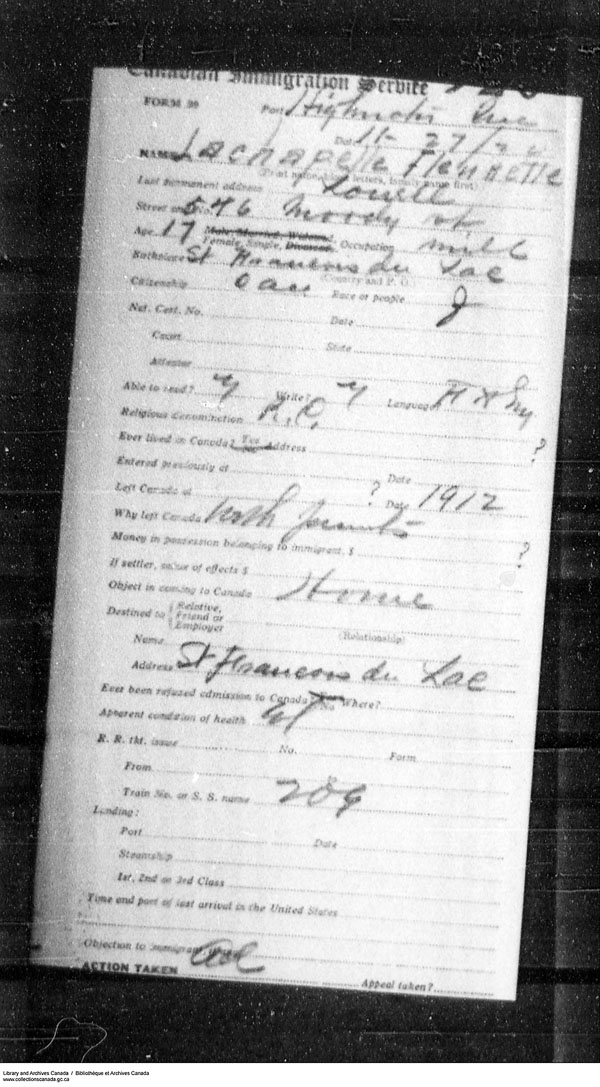 Canadian Immigration Service
FORM 30 Port Highwater Que
Date 11-27/
NAME Lachapelle
(Print name, block letters, family name first)
Last permanent address Lowell
Street and No. 546 Moody st
Age 17 Male, Married, Widowed,
Female, Single, Divorced. Occupation mill
Birthplace St Francois du Lac
(Country and P. O.)
Citizenship Can Race or people F
Nat. Cert. No. Date
Court State
Attestor
Able to read? Y Write? Y Language
Religious denomination R.C.
Ever lived in Canada? Yes
No Address ?
Entered previously at Date
Left Canada at ? Date 1912
Why left Canada with parents
Money in possession belonging to immigrant, $ ?
If settler, value of effects $
Object in coming to Canada Home
Destined to Relative,
Friend or
Employer
(Relationship)
Name
Address St Francois du Lac
Ever been refused admission to Canada? No Where?
Apparent condition of health
R. R. tkt. issue No. Form
From
Train No. or S. S. name 209
Landing:
Port Date
Steamship
1st, 2nd or 3rd Class
Time and port of last arrival in the United States
Objection to immigrant
ACTION TAKEN Appeal taken?
Library and Archives Canada / Bibliothèque et Archives Canada
www.collectionscanada.gc.ca